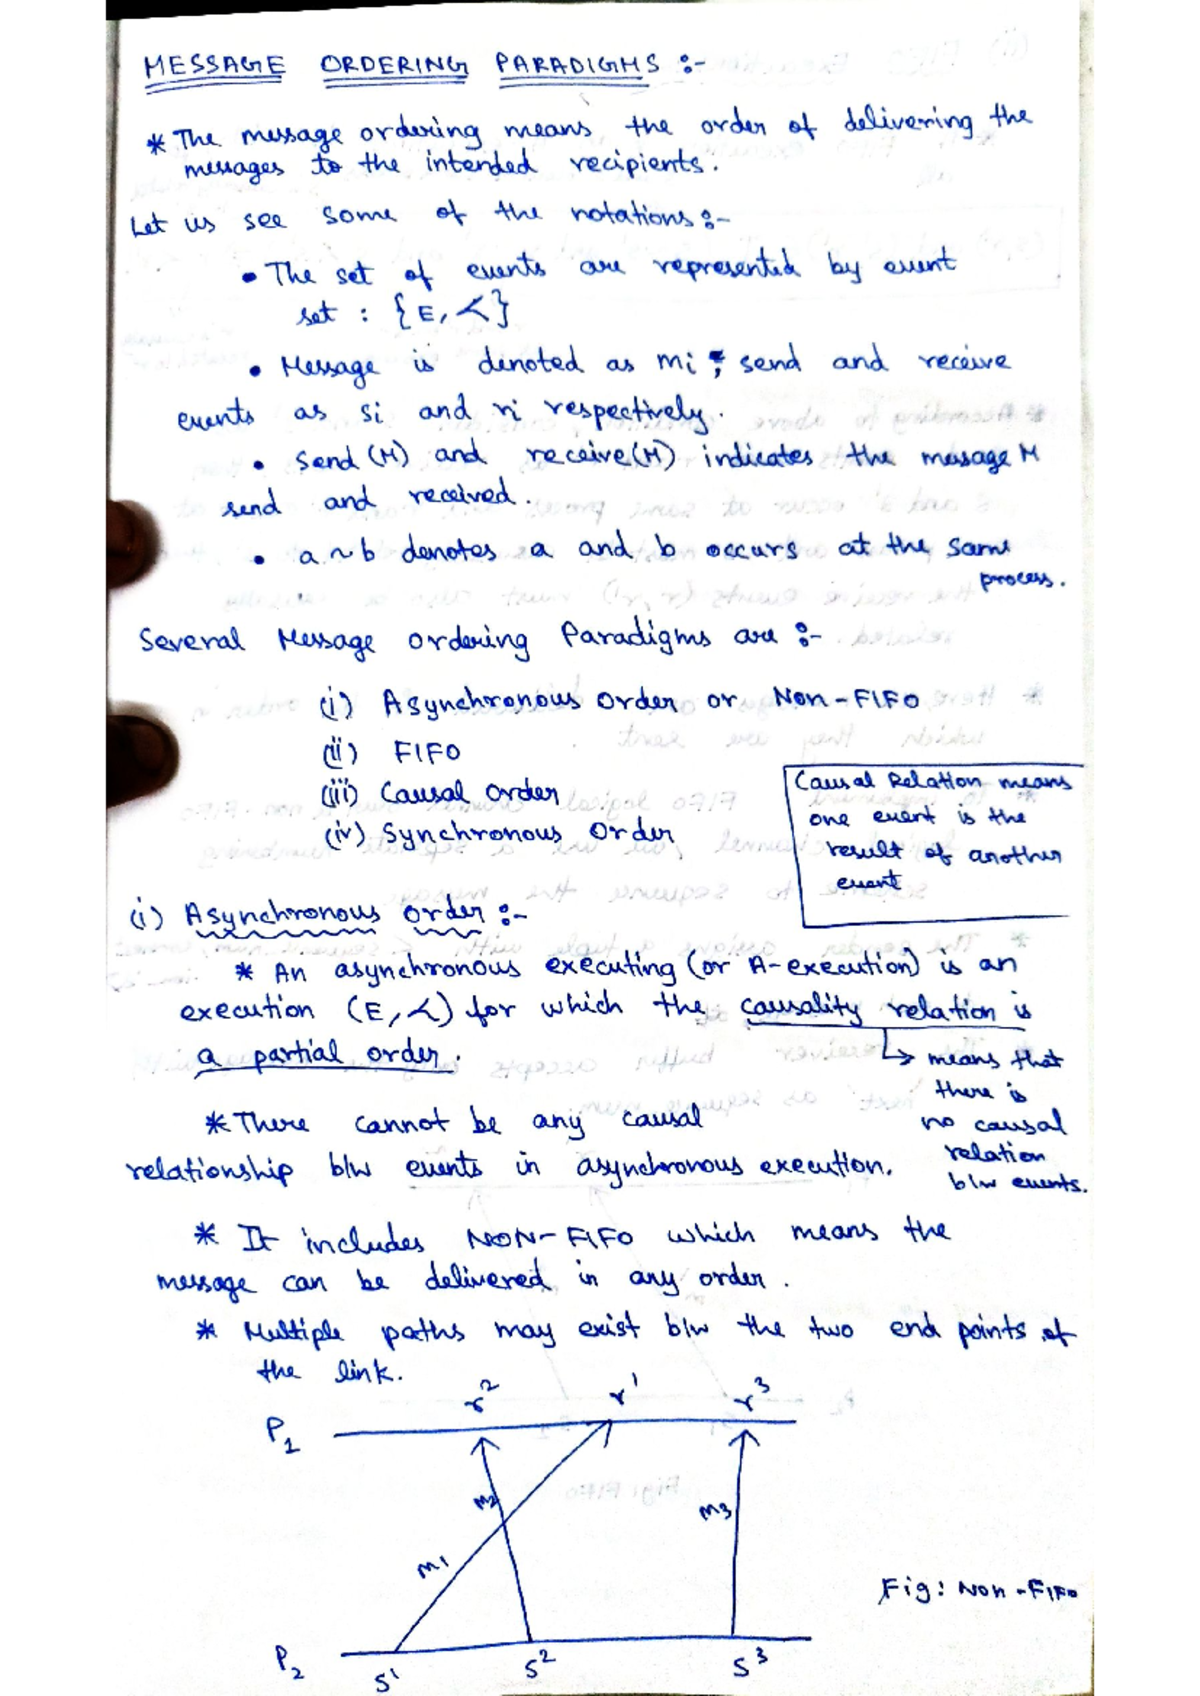 MESSAGE ORDERING PARADIGMS :-
* The message ordering means the order of delivering the
messages to the intended recipients.
Let us see some of the notations :-
• The set of events are represented by event
set : {E, ≺}
• Message is denoted as mi ; send and receive
events as si and ri respectively.
• Send (M) and receive(M) indicates the message M
send and received.
• a ~ b denotes a and b occurs at the same
process.
Several Message ordering Paradigms are :-
(i) Asynchronous order or Non-FIFO
(ii) FIFO
(iii) Causal Order
(iv) Synchronous Order
Causal Relation means
one event is the
result of another
event
(i) Asynchronous order :-
* An asynchronous executing (or A-execution) is an
execution (E, ≺) for which the causality relation is
a partial order.
↳ means that
there is
no causal
relation
b/w events.
* There cannot be any causal
relationship b/w events in asynchronous execution.
* It includes NON-FIFO which means the
message can be delivered in any order.
* Multiple paths may exist b/w the two end points of
the link.
r² r¹ r³
P₁
m2
m3
m1
Fig: Non-FIFO
P₂
s¹ s² s³